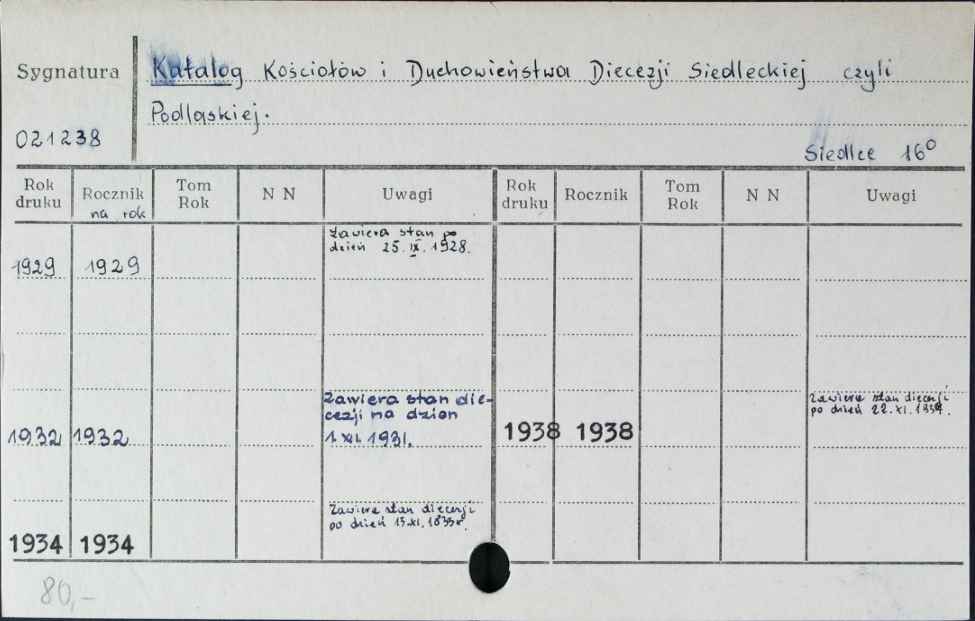 Sygnatura
Katalog Kościołów i Duchowieństwa Diecezji Siedleckiej czyli
Podlaskiej.
021238
Siedlce 16°
Rok druku Rocznik na rok Tom Rok N N Uwagi Rok druku Rocznik Tom Rok N N Uwagi
Zawiera stan po
dzień 25.IX.1928.
1929 1929
Zawiera stan die-
cezji na dzien
1 XI. 1931.
1932 1932
Zawiera stan diecezji
po dzień 22.XI.
1938 1938
Zawiera stan diecezji
po dzień 15.XI.
1934 1934
80,-